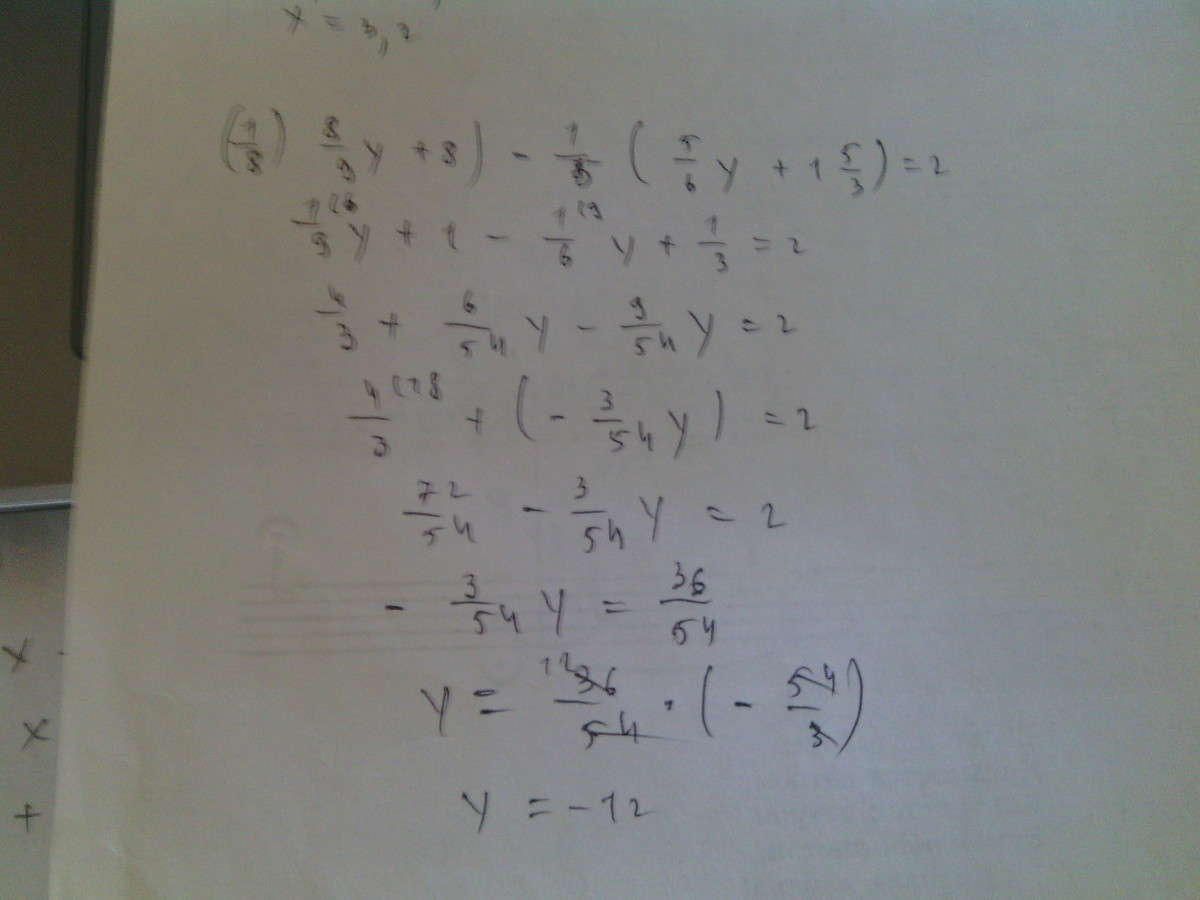 x = 3,2
(1/8) 8/9 y + 8) - 1/5 ( 5/6 y + 1 5/3 ) = 2
1(6/9 y + 1 - 1(9/6 y + 1/3 = 2
4/3 + 6/54 y - 9/54 y = 2
4(18/3 + (- 3/54 y) = 2
72/54 - 3/54 y = 2
- 3/54 y = 36/54
y = 12 36/54 · (- 54/3)
y = -12
x -
x
+